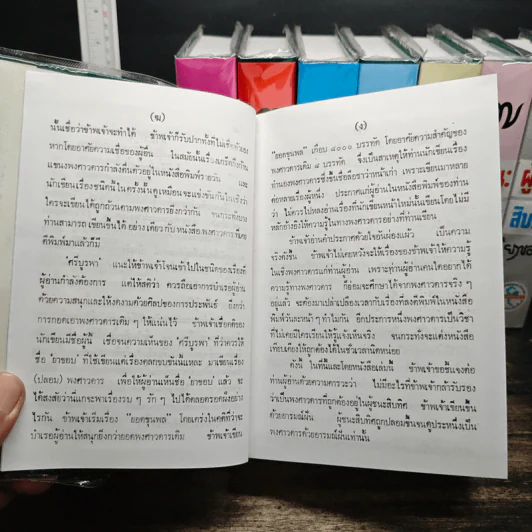 (ฆ)
นั้นเชื่อว่าข้าพเจ้าจะทำได้ ข้าพเจ้าก็รับปากทั้งที่ไม่เชื่อตัวเอง
หากโดยอาศัยความเชื่อของผู้อื่น ในสมัยนั้นเรื่องเกร็ดอิงหรือ
แขนงพงศาวดารกำลังตื่นตัวอยู่ในหนังสือพิมพ์รายวัน และ
นักเขียนเรื่องชนิดนี้ในครั้งนั้นดูเหมือนจะแข่งขันกันในเชิงว่า
ใครจะเขียนได้ถูกถ้วนตามพงศาวดารยิ่งกว่ากัน จนกระทั่งบาง
ท่านสามารถเขียนขึ้นได้อย่างเดียวกับหนังสือพงศาวดารที่เคย
ตีพิมพ์มาแล้วก็มี
'ศรีบูรพา' แนะให้ข้าพเจ้าโจนเข้าไปในชนิดของเรื่องที่
ผู้อ่านกำลังต้องการ แต่ให้สติว่า ควรถือเอาการบำเรอผู้อ่าน
ด้วยความสนุกและให้งดงามด้วยศิลปของการประพันธ์ ยิ่งกว่า
การถอดเอาพงศาวดารเดิม ๆ ให้แน่นไว้ ข้าพเจ้าเชื่อคติของ
นักเขียนมีชื่อผู้นั้น เชื่อจนความเห็นของ 'ศรีบูรพา' ที่ว่าควรให้
ชื่อ 'ยาขอบ' ที่ใช้เขียนแต่เรื่องตลกขบขันนั้นแหละ มาเขียนเรื่อง
(ปลอม) พงศาวดาร เพื่อให้ผู้อ่านเห็นชื่อ 'ยาขอบ' แล้ว จะ
ได้สงสัยว่าแกจะพาเรื่องรบ ๆ รัก ๆ ไปได้ตลอดรอดฝั่งอย่าง
ไรกัน ข้าพเจ้าเริ่มเรื่อง "ยอดขุนพล" โดยเคร่งในคติที่ว่าจะ
บำเรอผู้อ่านให้สนุกยิ่งกว่ายอดพงศาวดารเดิม ข้าพเจ้าเขียน
(ง)
"ยอดขุนพล" เกือบ ๘๐๐๐ บรรทัด โดยอาศัยความสำคัญของ
พงศาวดารเดิม ๘ บรรทัด จึงเป็นสาเหตุให้ท่านนักเขียนเรื่อง
ทำนองพงศาวดารซึ่งขึ้นชื่อลือชาว่าหน้าเก่า เพราะเขียนมาหลาย
ต่อหลายเรื่องผู้หนึ่ง ประกาศแก่ผู้อ่านในหนังสือพิมพ์ของท่าน
ว่า ไม่ควรไปหลงอ่านเรื่องที่นักเขียนหน้าใหม่นั้นเขียนโดยไม่มี
หลักอ้างยิ่งให้ความรู้ในทางพงศาวดารอย่างที่ท่านเขียน
ข้าพเจ้าอ่านคำประกาศด้วยใจอันผ่องแผ้ว เป็นความ
จริงดังขึ้น ข้าพเจ้าไม่เคยหวังจะให้เรื่องของข้าพเจ้าให้ความรู้
ในเชิงพงศาวดารแก่ท่านผู้อ่าน เพราะท่านผู้อ่านคนใดอยากได้
ความรู้ทางพงศาวดาร ก็ย่อมจะศึกษาได้จากพงศาวดารจริง ๆ
อยู่แล้ว จะต้องมาเปล่าเปลืองเวลากับเรื่องที่ลงติดพิมพ์ในหนังสือ
พิมพ์วันละหน้า ๆ ทำไมกัน อีกประการหนึ่งพงศาวดารเป็นวิชา
ที่ไม่เคยมีใครเรียนให้รู้แจ้งเห็นจริง จนกระทั่งจะแต่งหนังสือ
เทียบเคียงให้ถูกต้องได้ในชั่วเวลานิดหน่อย
ดังนั้น ในที่นี้และโดยหนังสือเล่มนี้ ข้าพเจ้าขอชี้แจงต่อ
ท่านผู้อ่านด้วยความคารวะว่า ไม่มีอะไรที่ข้าพเจ้ากล้ารับรอง
ว่าเป็นพงศาวดารที่ถูกต้องอยู่ในผู้ชนะสิบทิศ ข้าพเจ้าเขียนขึ้น
ด้วยอารมณ์ฝัน ผู้ชนะสิบทิศถูกปลอมขึ้นจนดูประหนึ่งเป็น
พงศาวดารด้วยอารมณ์ฝันเท่านั้น